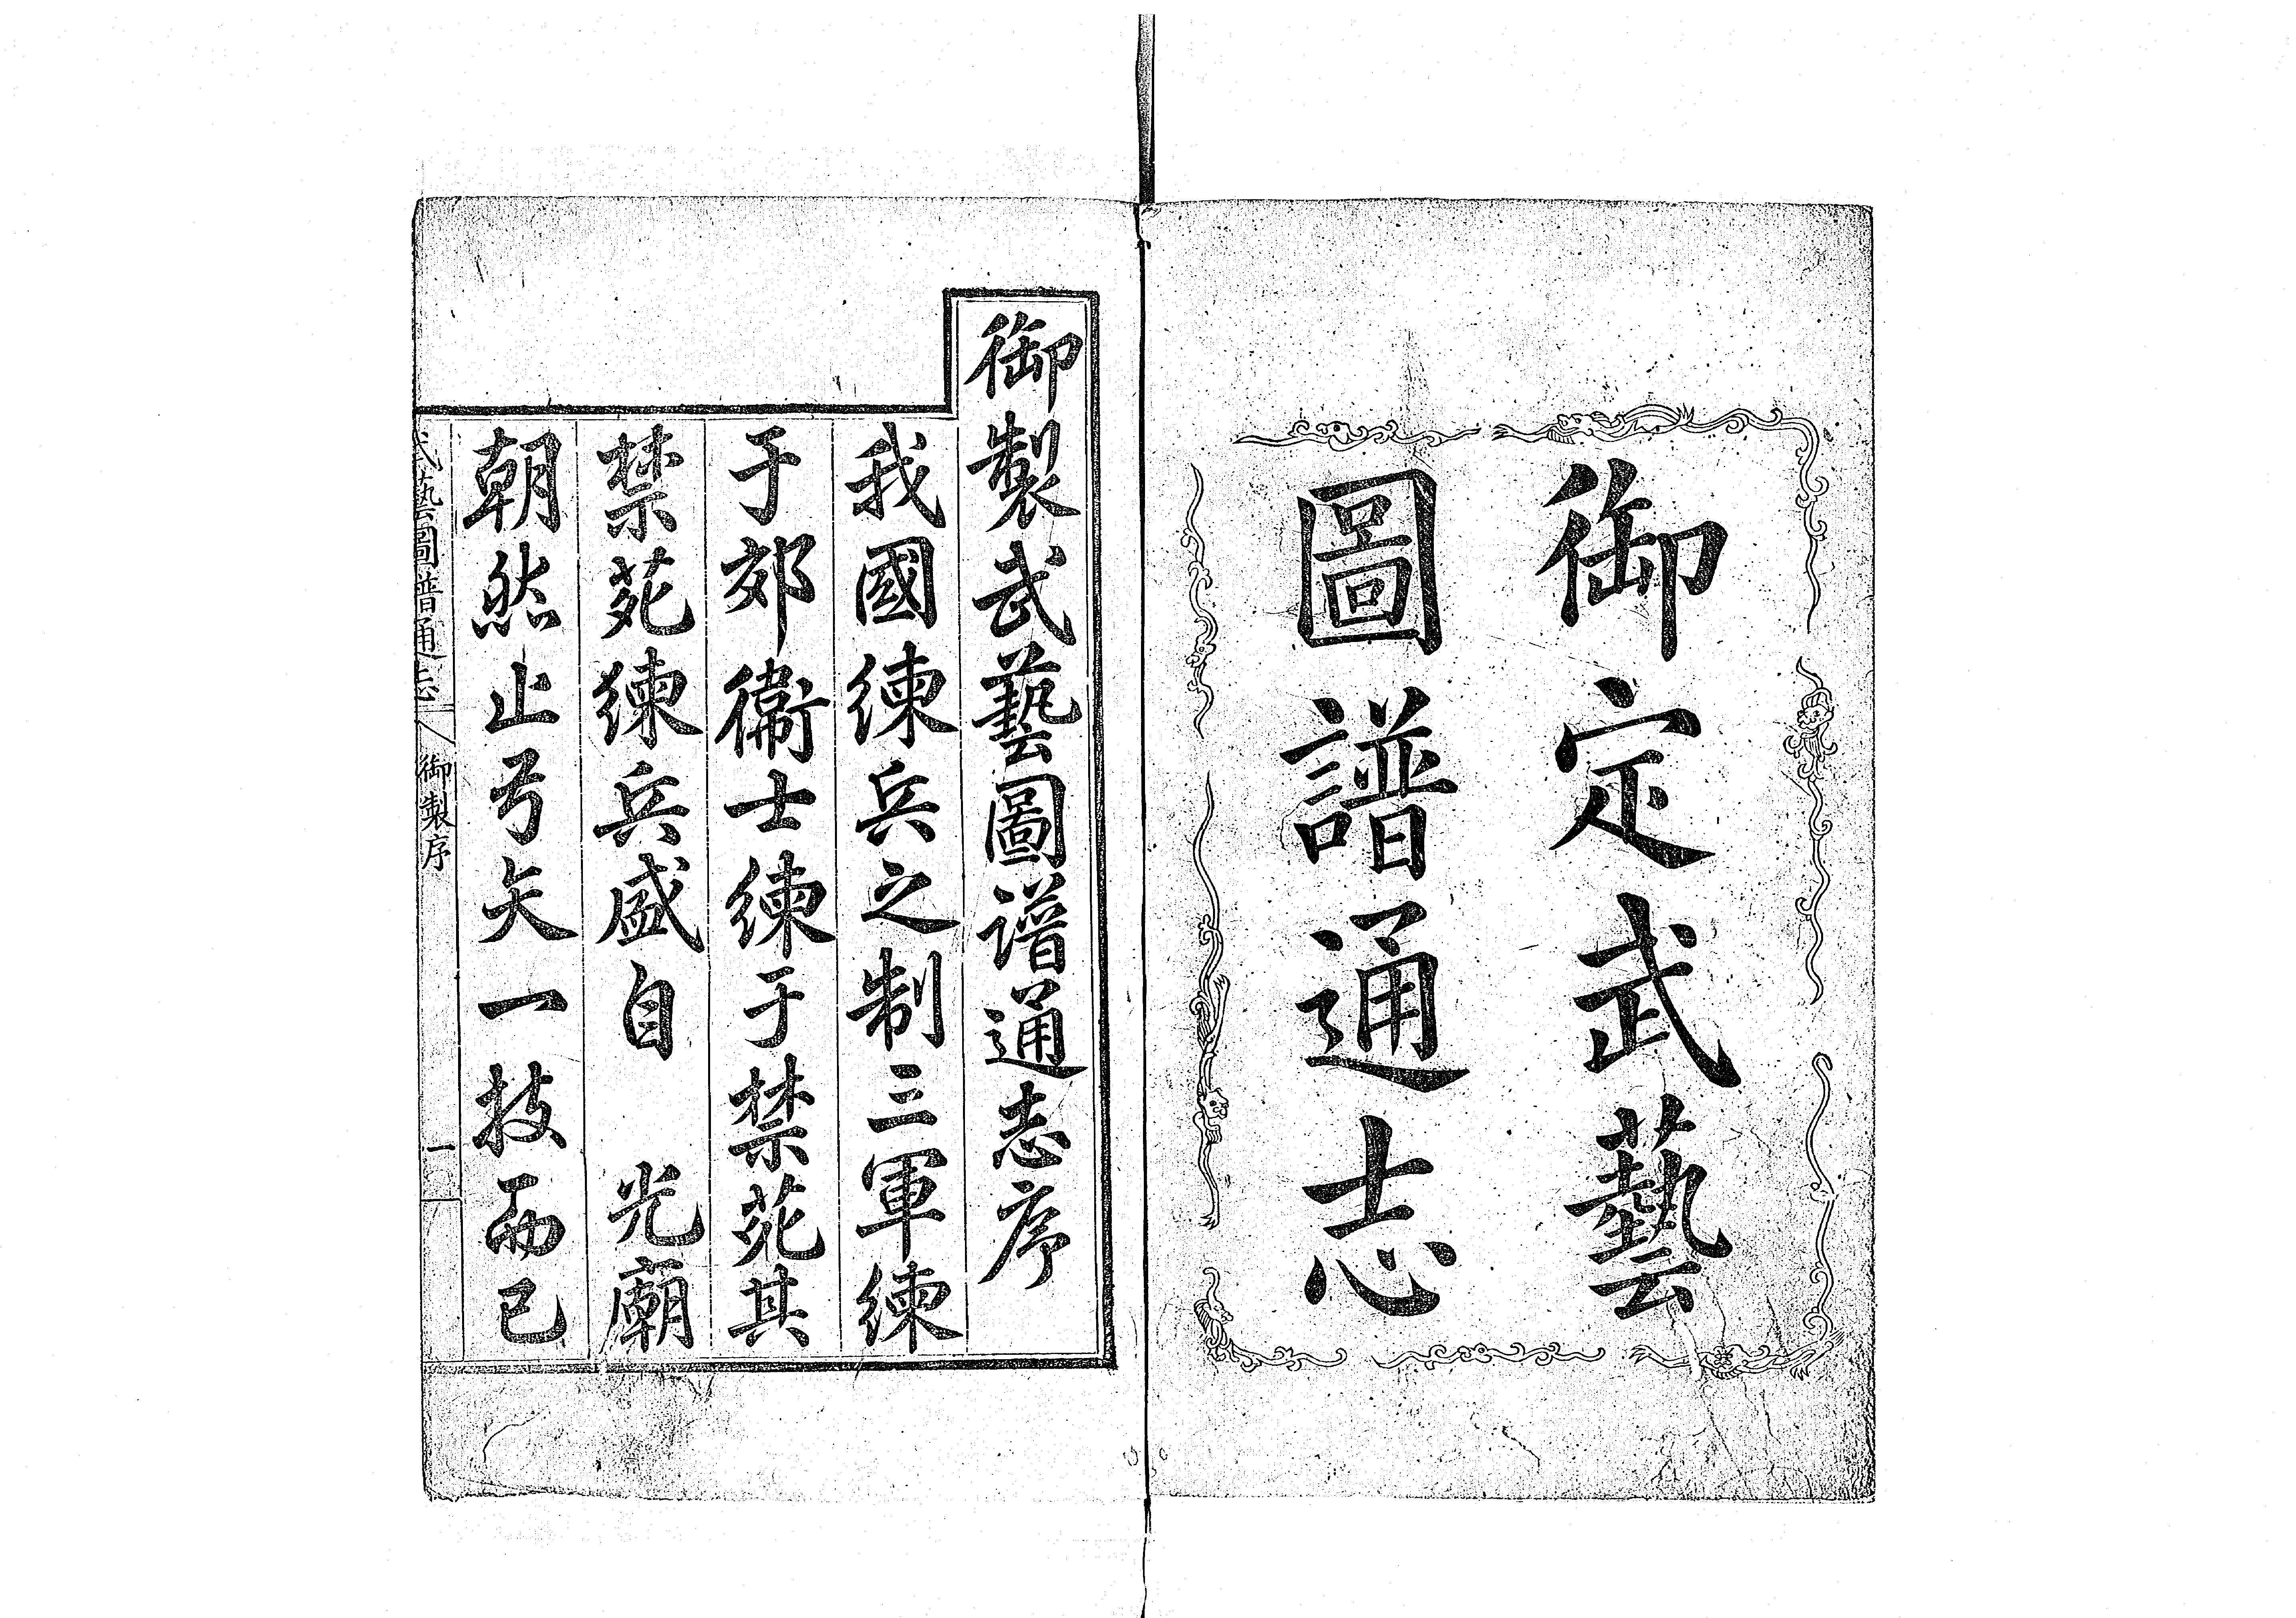 御定武藝
圖譜通志
御製武藝圖譜通志序
我國練兵之制三軍練
于郊衞士練于禁苑其
禁苑練兵盛自 光廟
朝然止弓矢一技而已
武藝圖譜通志 御製序 一